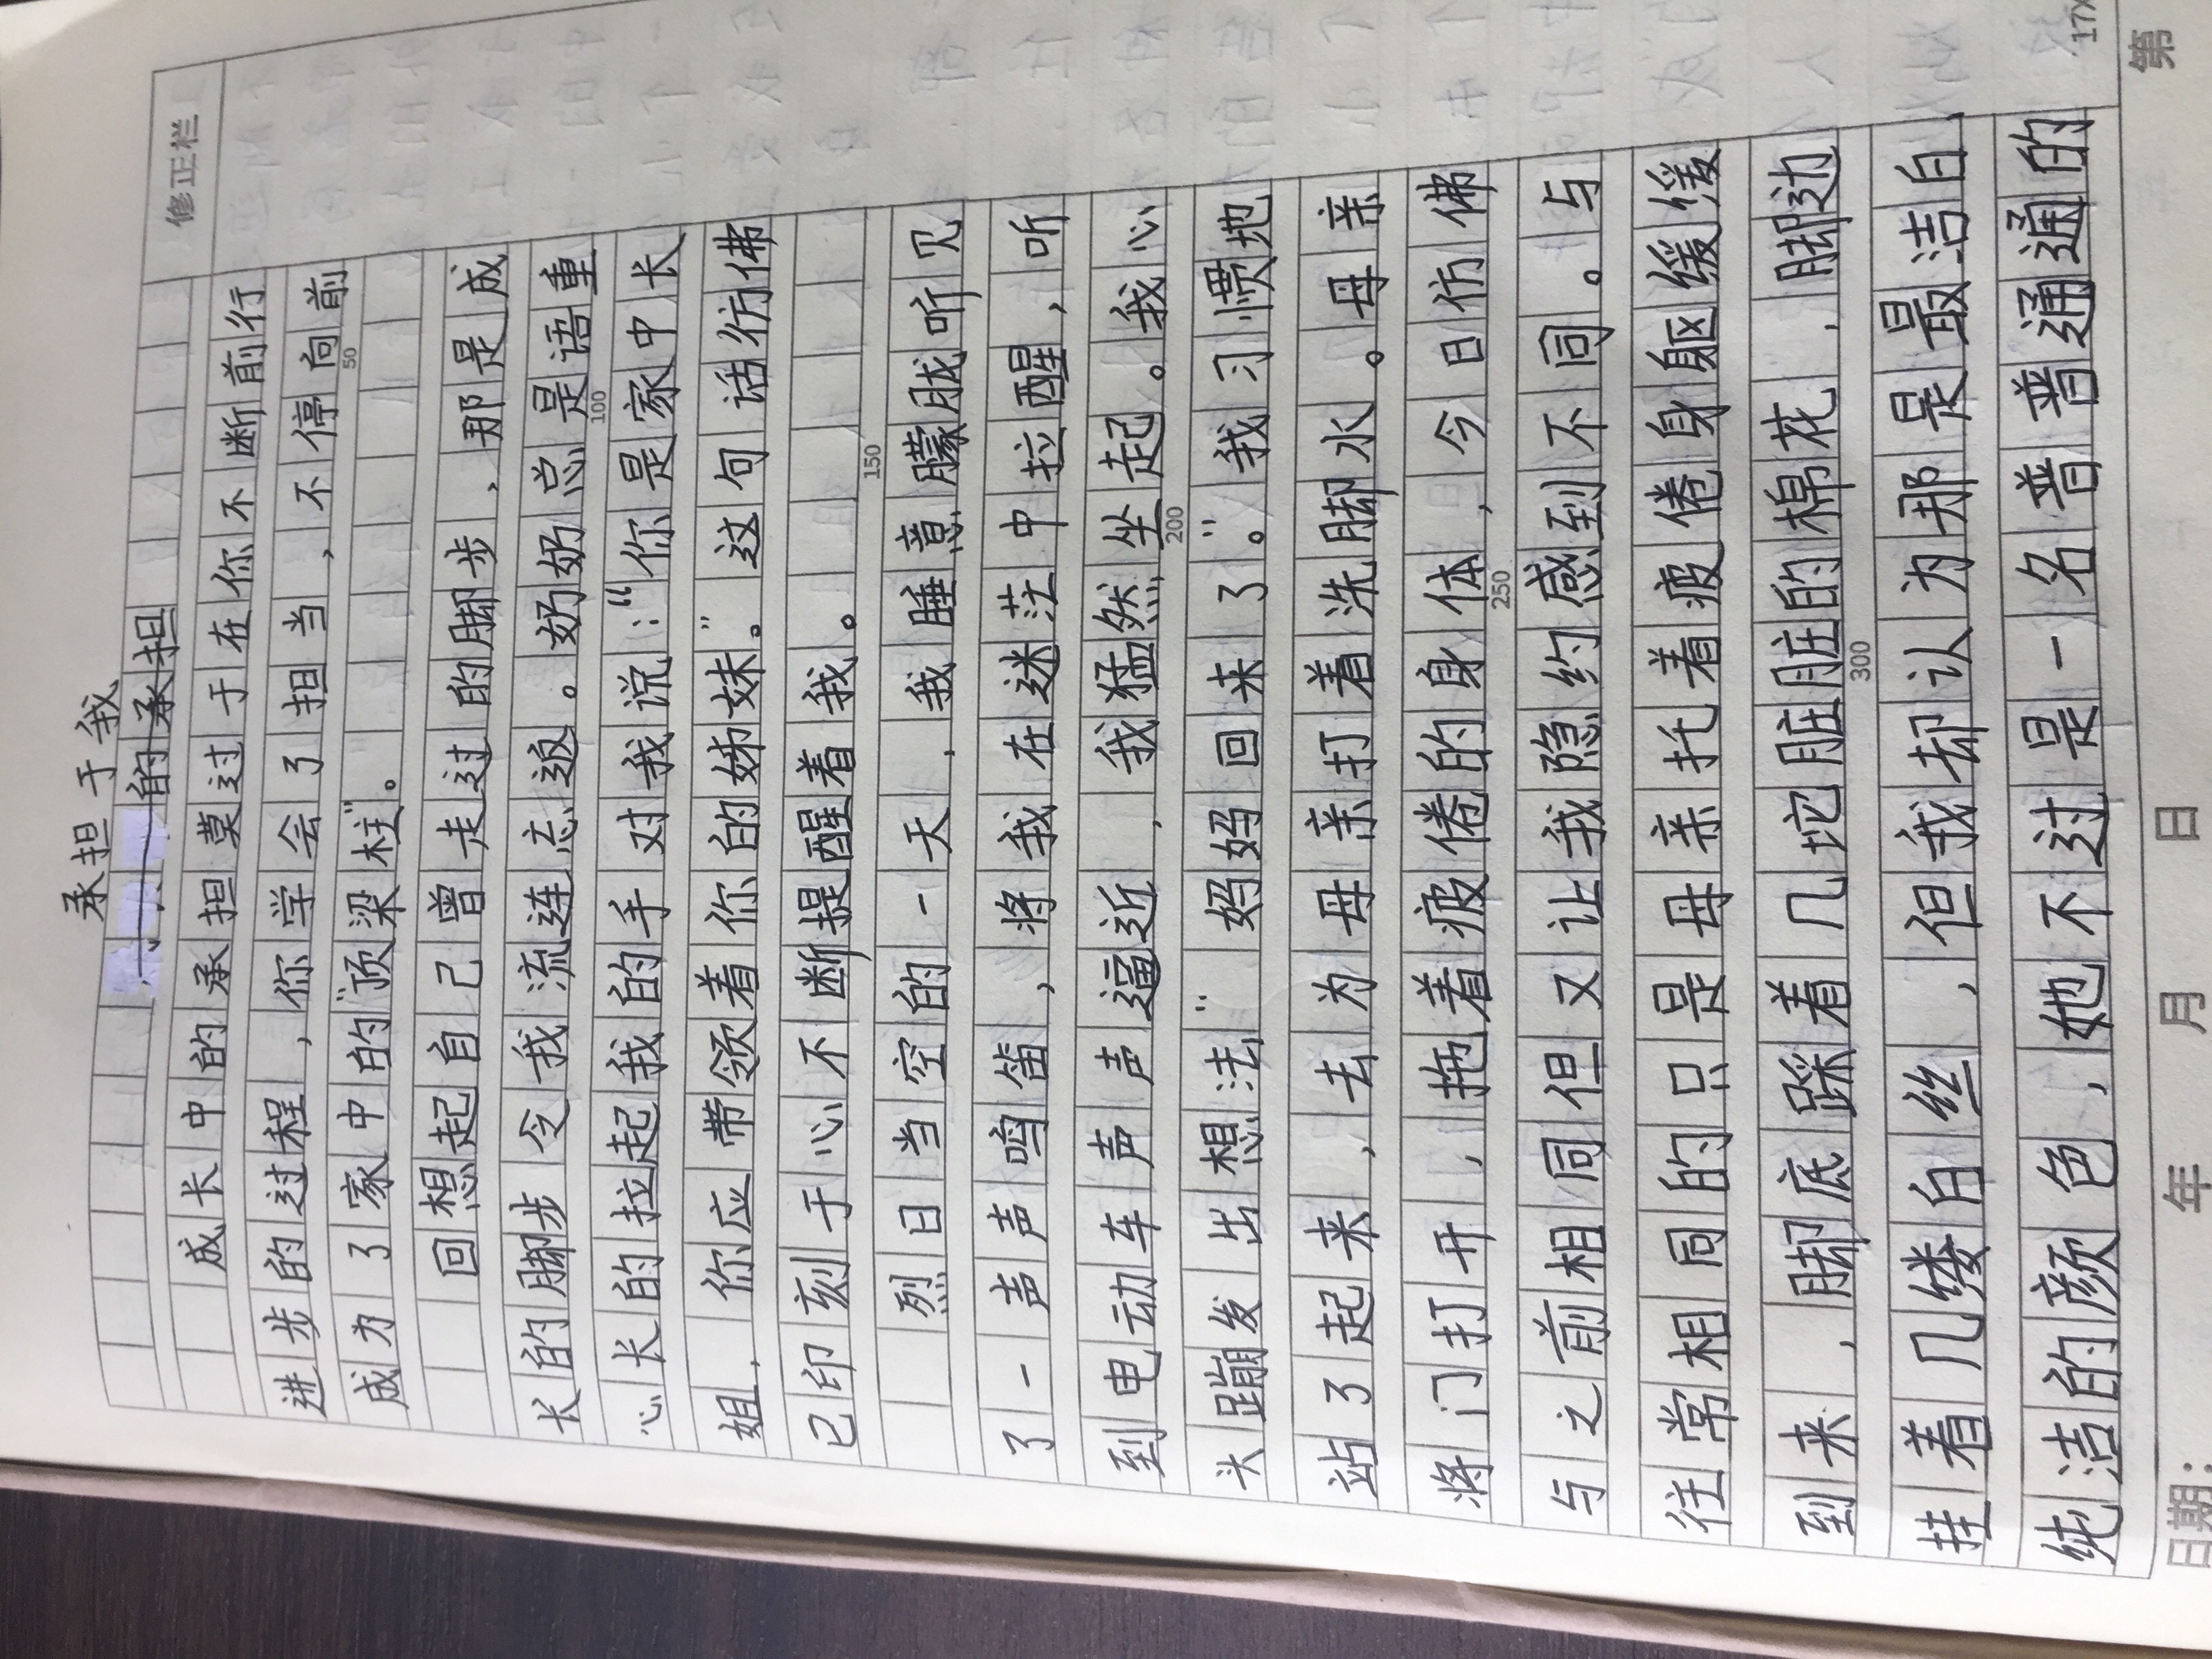 承担于我
的承担
修正栏
成长中的承担莫过于在你不断前行
进步的过程，你学会了担当，不停向前
50
成为了家中的"顶梁柱"。
回想起自己曾走过的脚步，那是成
长的脚步令我流连忘返。奶奶总是语重
100
心长的拉起我的手对我说："你是家中长
姐，你应带领着你的姊妹。"这句话彷佛
已印刻于心不断提醒着我。
150
烈日当空的一天，我睡意朦胧听见
了一声声鸣笛，将我在迷茫中拉醒，听
到电动车声声逼近，我猛然坐起。我心
200
头蹦发出想法"妈妈回来了。"我习惯地
站了起来，去为母亲打着洗脚水。母亲
将门打开，拖着疲倦的身体，今日仿佛
250
与之前相同但又让我隐约感到不同。与
往常相同的只是母亲托着疲倦身躯缓缓
到来，脚底踩着几坨脏脏的棉花，脚边
300
挂着几缕白丝，但我却认为那是最洁白
纯洁的颜色，她不过是一名普普通通的
17X
日期： 年 月 日 第